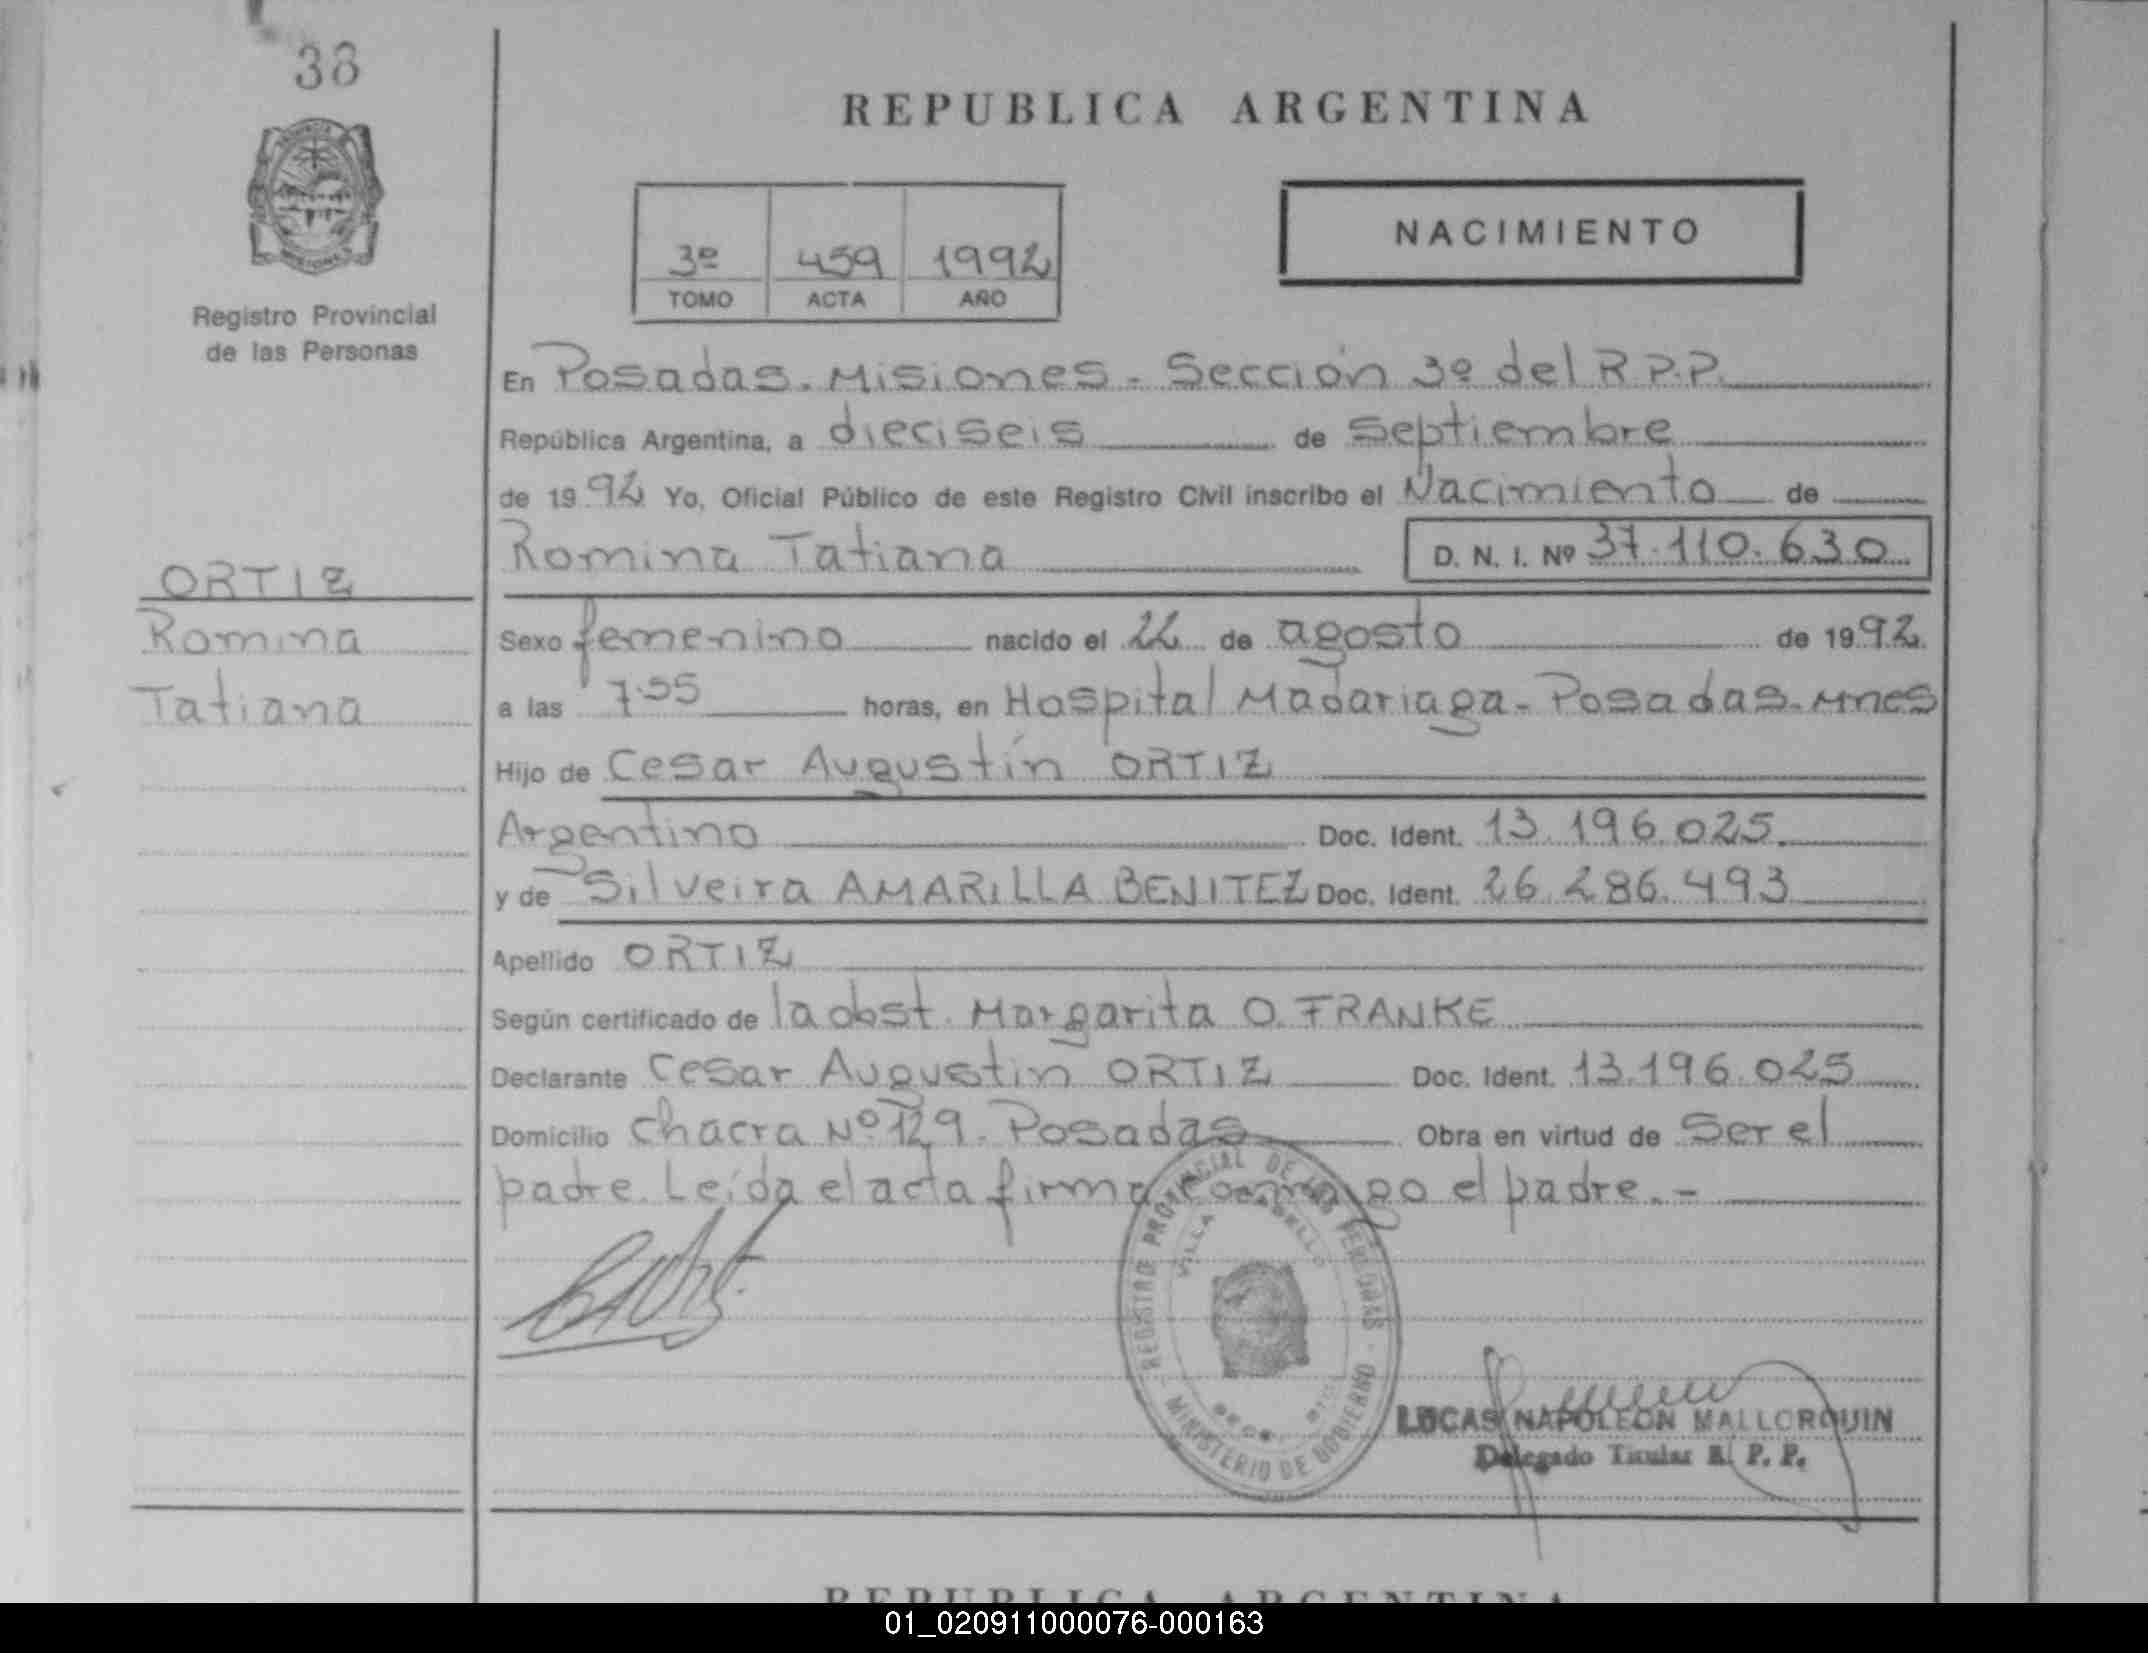 38
REPUBLICA ARGENTINA
NACIMIENTO
3º 459 1992
TOMO ACTA AÑO
Registro Provincial
de las Personas
En Posadas. Misiones. Sección 3º del R.P.P.
República Argentina, a dieciseis de Septiembre
de 1992 Yo, Oficial Público de este Registro Civil inscribo el Nacimiento de
Romina Tatiana D. N. I. Nº 37.110.630
ORTIZ
Romina
Tatiana
Sexo femenino nacido el 22 de agosto de 1992
a las 7.55 horas, en Hospital Madariaga - Posadas. Mnes
Hijo de Cesar Augustín ORTIZ
Argentino Doc. Ident. 13.196.025
y de Silveira AMARILLA BENITEZ Doc. Ident. 26.286.493
Apellido ORTIZ
Según certificado de la obst. Margarita O. FRANKE
Declarante Cesar Augustin ORTIZ Doc. Ident. 13.196.025
Domicilio Chacra Nº 129. Posadas Obra en virtud de Ser el
padre. Leída el acta firma conmigo el padre. -
REGISTRO PROVINCIAL DE LAS PERSONAS
VILLA CABELLO
MINISTERIO DE GOBIERNO
LUCAS NAPOLEON MALLORQUIN
Delegado Titular R. P. P.
REPUBLICA ARGENTINA
01_020911000076-000163